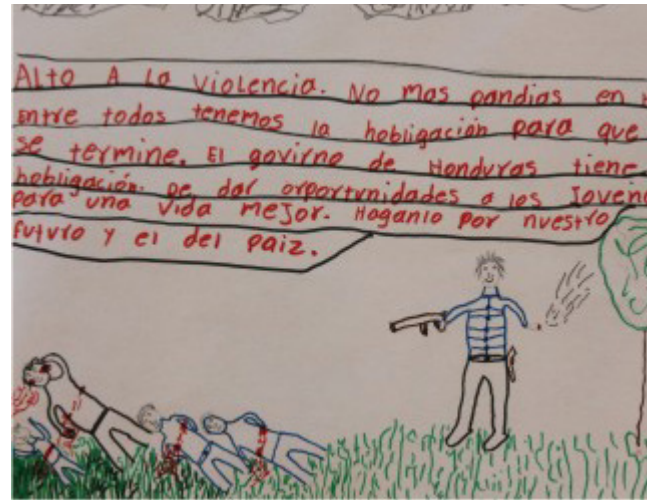 Alto A la violencia. No mas pandias en
Entre todos tenemos la hobligación para que
se termine. El govirno de Honduras tiene
hobligación. De dar orportvnidades a los Jovene
para una vida mejor. Haganlo por nuestro
futvro y el del paiz.